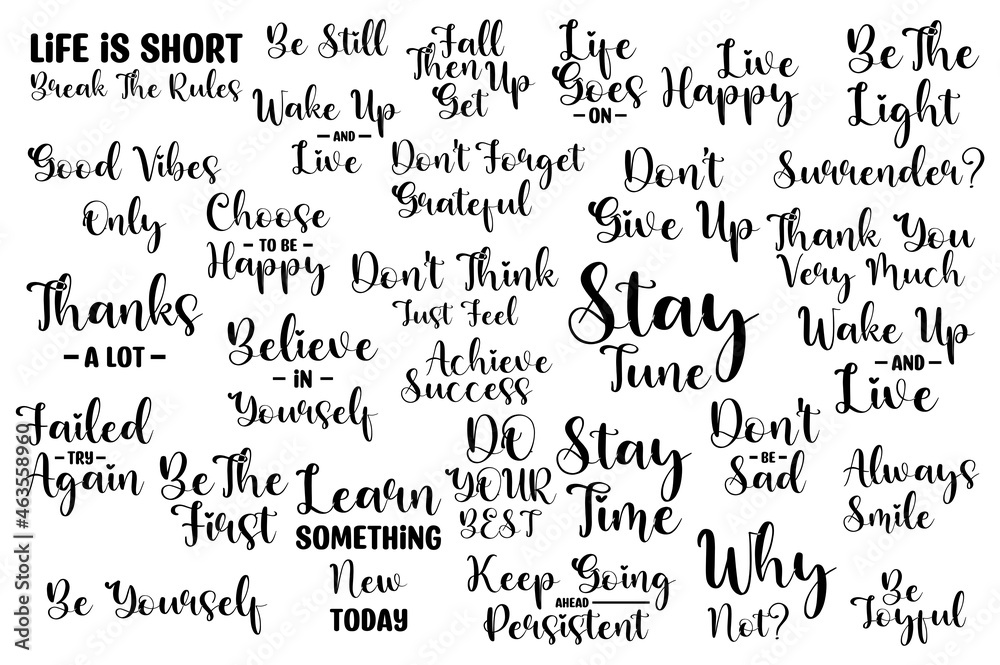 LiFE iS SHORT
Break The Rules
Be Still
Fall
Then Up
Get
Life
Goes
- ON -
Live
Happy
Be The
Light
Wake Up
- AND -
Live
Good Vibes
Only
Choose
- TO BE -
Happy
Don't Forget
Grateful
Don't
Give Up
Surrender?
Thank You
Very Much
Thanks
- A LOT -
Believe
- IN -
Yourself
Don't Think
Just Feel
Achieve
Success
Stay
Tune
Wake Up
- AND -
Live
Failed
- TRY -
Again
Be The
First
Learn
SOMETHiNG
New
TODAY
DO
YOUR
BEST
Stay
Time
Don't
- BE -
Sad
Always
Smile
Be Yourself
Keep Going
AHEAD
Persistent
Why
Not?
Be
Joyful
Adobe Stock | #463558960
Adobe Stock